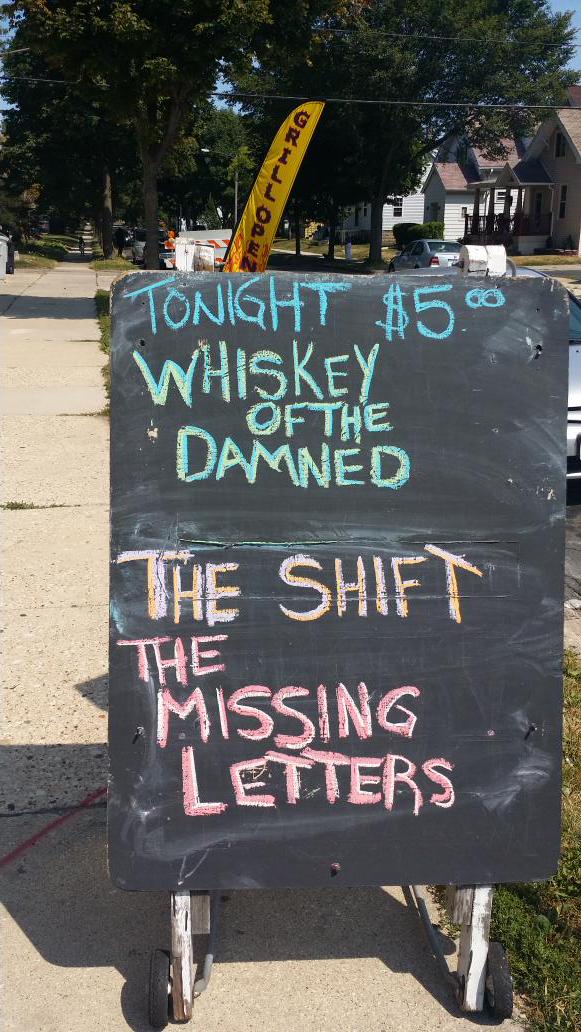 GRILL OPEN
TONIGHT $5.00
WHISKEY
OF THE
DAMNED
THE SHIFT
THE
MISSING
LETTERS